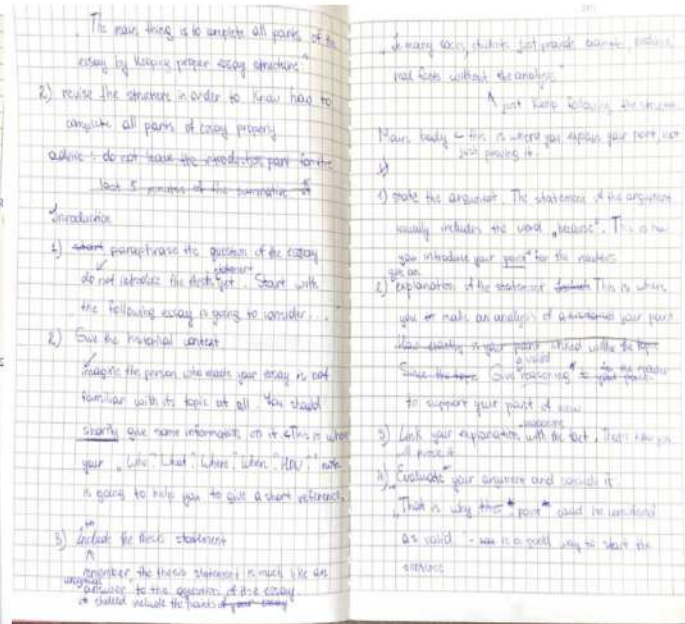 "The main thing is to complete all parts of the
essay by keeping proper essay structure"
2) revise the structure in order to know how to
complete all parts of essay properly
advice: do not leave the introduction part for the
last 5 minutes of the summative
Introduction
1) start paraphrase the question of the essay
do not introduce the thesis yet. Start with
statement
"the following essay is going to consider..."
2) Give the historical context
imagine the person who reads your essay is not
familiar with its topic at all. You should
shortly give some information on it. This is when
your "Who", "What", "Where", "When", "How",
is going to help you to give a short reference.
3) Include the thesis statement
remember, the thesis statement is much like an
answer to the question of the essay.
it should include the points of your essay
"In many cases, students just provide examples,
real facts without the analysis"
just keep following the structure
Main body - this is where you explain your point, not
just proving it
1) state the argument. The statement of the argument
usually includes the word "because". This is how
you introduce your point for the readers
2) explanation of the statement This is where
you make an analysis of your point
How exactly is your point linked with the topic
Give valid reasoning
to support your point of view
3) Link your explanation with the fact. That's how you
prove it
4) Evaluate your argument and conclude it
"That is why this point could be considered
as valid" - is a good way to start the